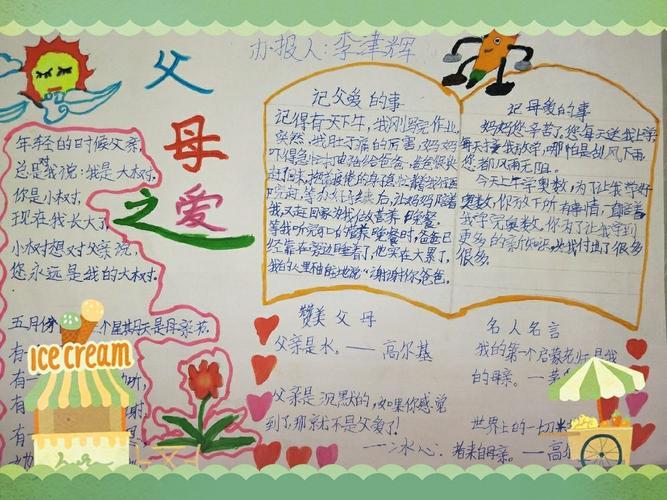 办报人:李津辉
父母之爱
年轻的时候父亲
总是对我说:我是大树.
你是小树.
现在我长大了
小树想对父亲说,
您永远是我的大树.
五月份 个星期天是母亲节
有
有一
有
有
ICE CREAM
Love
记父爱的事
记得有天下午,我刚写完作业,
突然,我肚子痛的厉害,妈妈
吓得急忙打电话给爸爸,爸爸很快
赶回来,
医院,
我,又赶回家给我做营养晚餐.
等我听完 营养晚餐时,爸爸已
经靠在旁边睡着了,他实在太累了.
我的心里袖袖地说"谢谢你爸爸.
记母爱的事
妈妈您辛苦了,您每天送我上学
每天接我放学,哪怕是刮风下雨
您都风雨无阻。
今天上午学奥数,为了让我学好
奥数,你放下所有事情,一直陪着
我学完奥数,你为了让我学到
更多的新知识,为我付出了很多
很多.
赞美父母
父亲是水。——高尔基
父亲是沉默的,如果你感觉
到了那就不是父爱了!
——冰心
名人名言
我的第一个启蒙老师是我
的母亲。——茅
世界上的一切
都来自母亲。——高尔